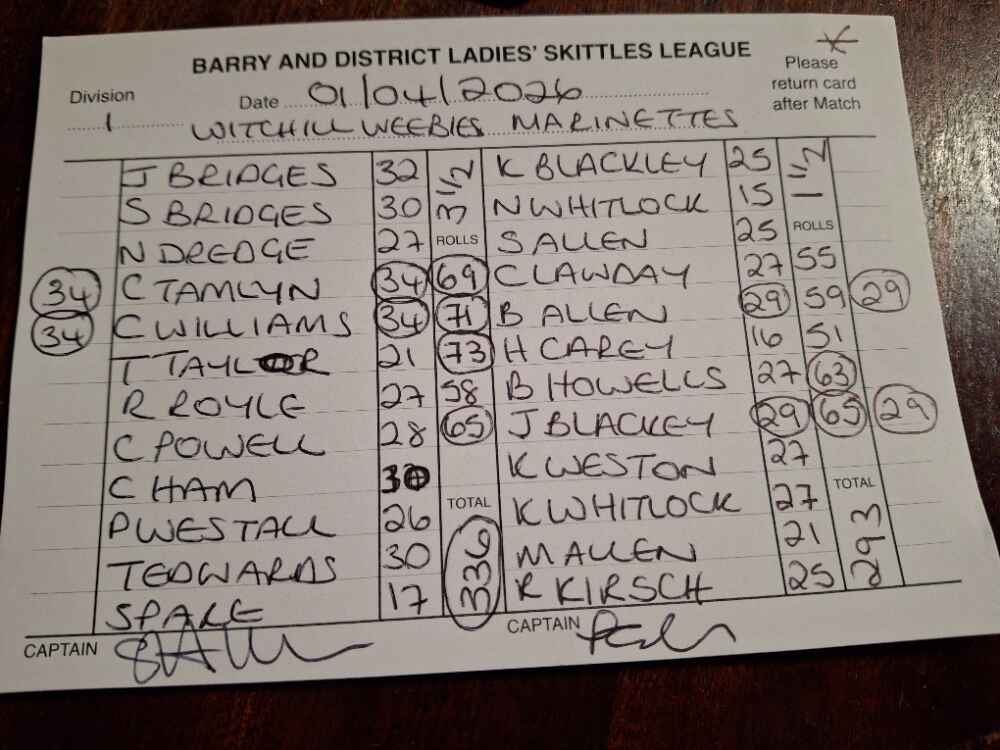 BARRY AND DISTRICT LADIES' SKITTLES LEAGUE
Division 1
Date 01/04/2026
Please
return card
after Match
WITCHILL WEEBIES MARINETTES
J BRIDGES 32 3 1/2 K BLACKLEY 25 1 1/2
S BRIDGES 30 N WHITLOCK 15
N DREDGE 27 ROLLS S ALLEN 25 ROLLS
34 C TAMLYN 34 69 C LAWDAY 27 55
34 C WILLIAMS 34 71 B ALLEN 29 59 29
T TAYLOR 21 73 H CAREY 16 51
R ROYLE 27 58 B HOWELLS 27 63
C POWELL 28 65 J BLACKEY 29 65 29
C HAM 30 K WESTON 27
P WESTALL 26 TOTAL K WHITLOCK 27 TOTAL
T EDWARDS 30 336 M ALLEN 21 293
SPARE 17 R KIRSCH 25
CAPTAIN CAPTAIN